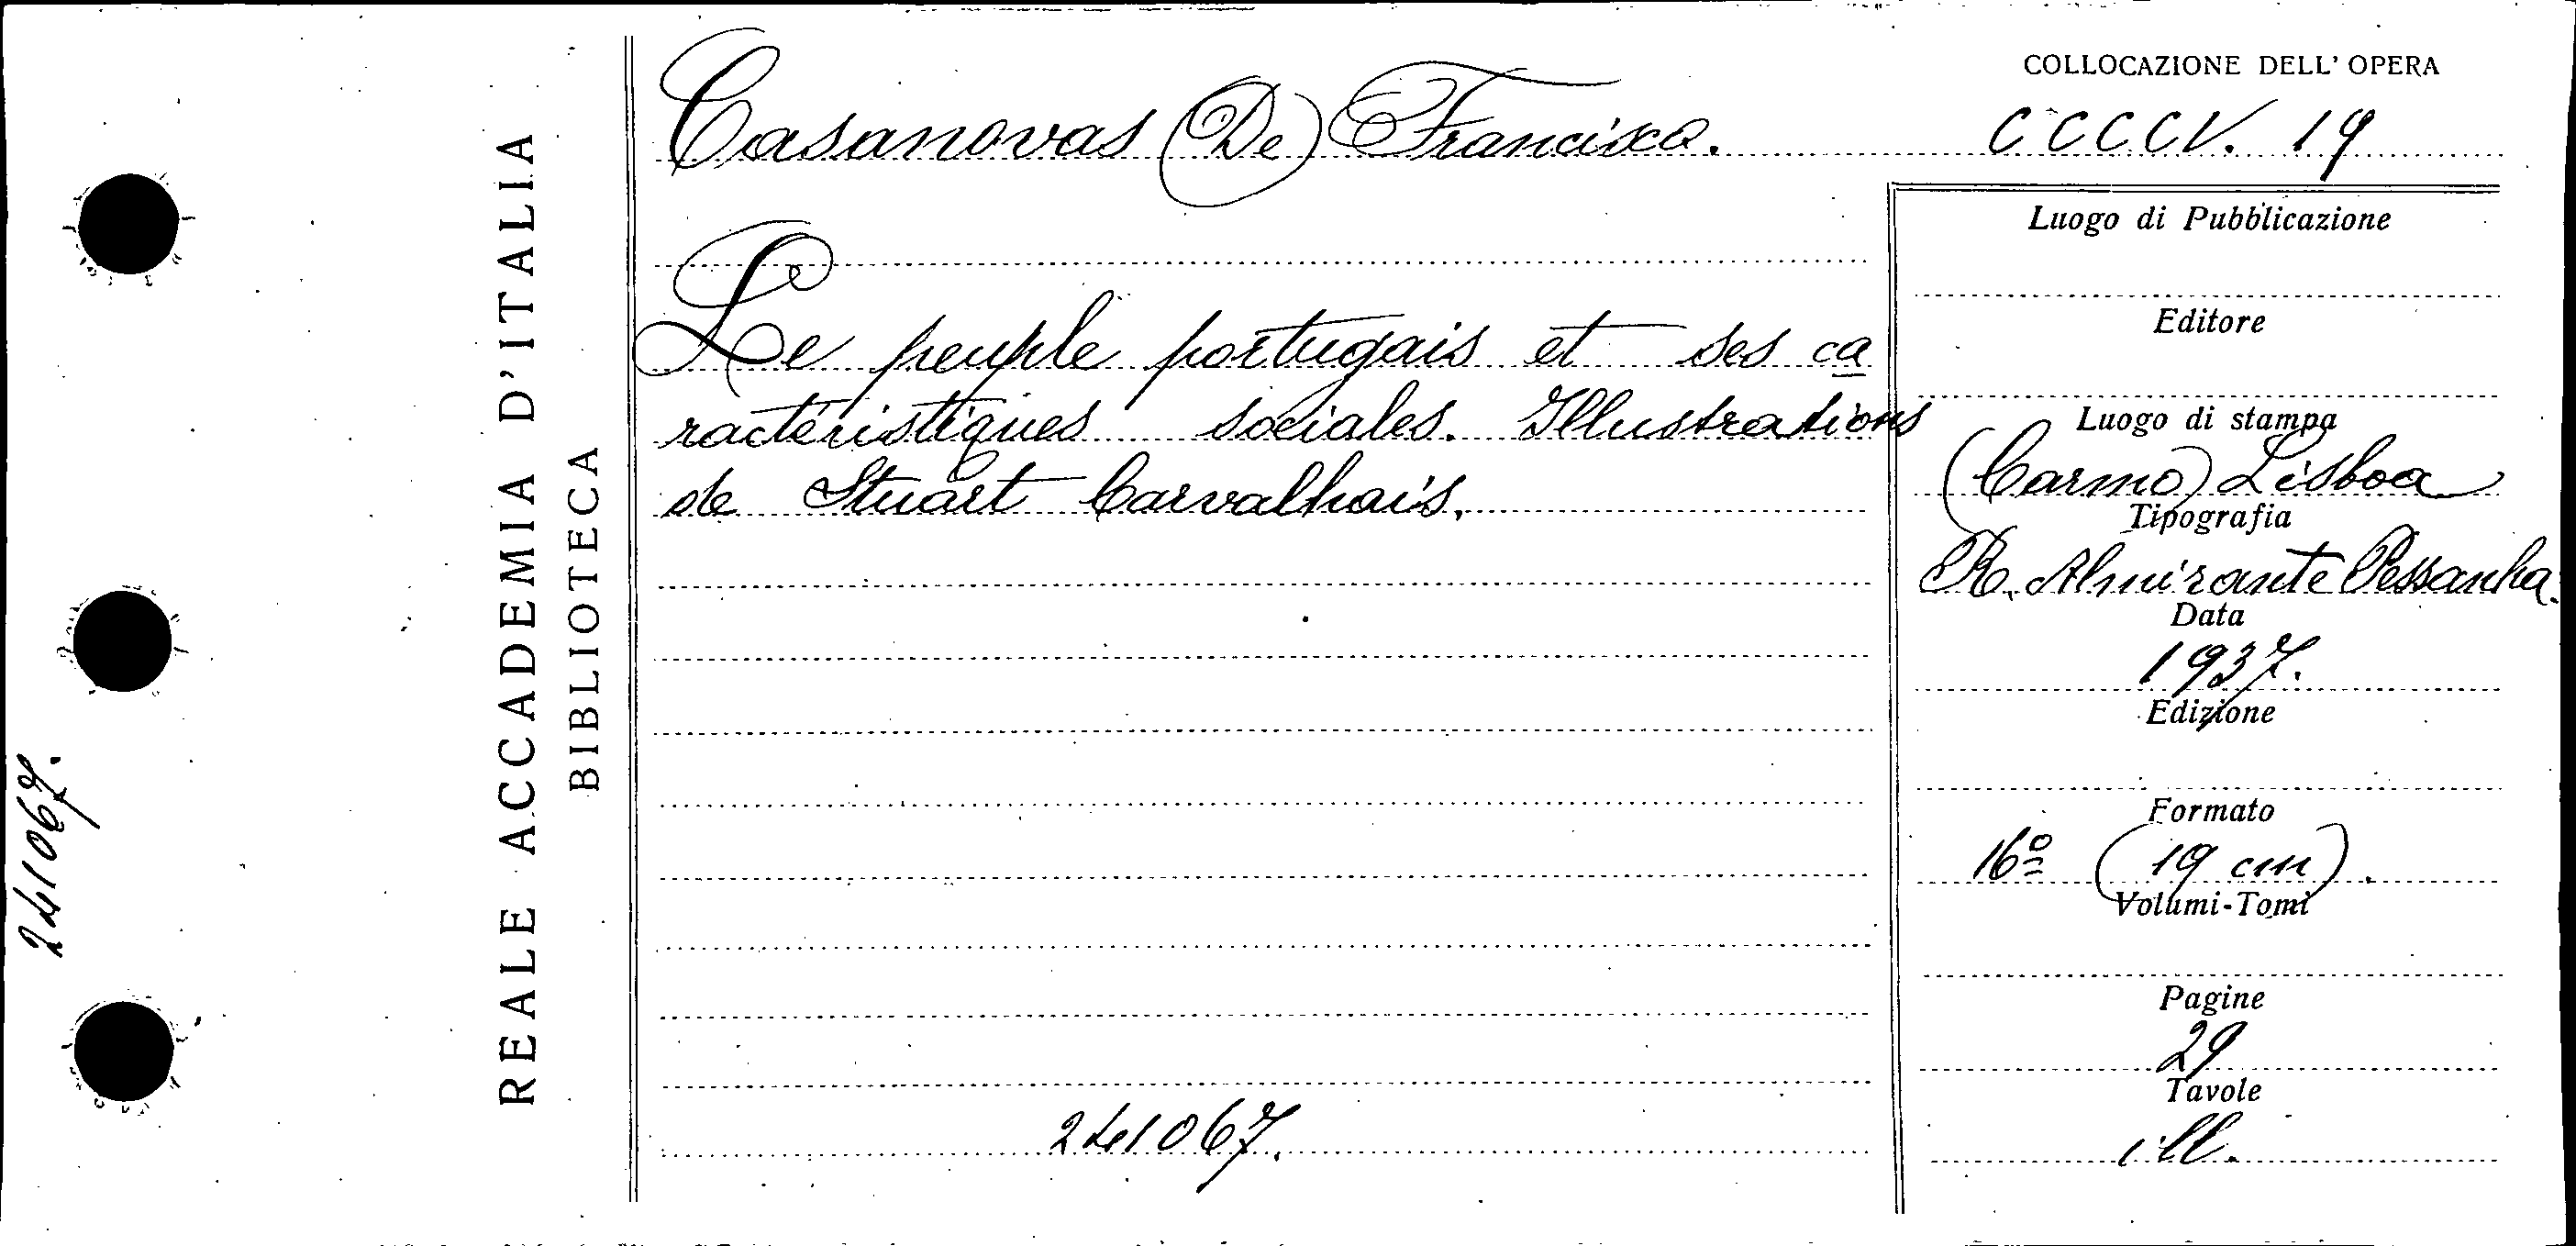 COLLOCAZIONE DELL' OPERA
Casanovas (De) Francisco.
CCCCV. 19
Le peuple portugais et ses ca
ractéristiques sociales. Illustrations
de Stuart Carvalhais.
241067.
Luogo di Pubblicazione
Editore
Luogo di stampa
(Carmo) Lisboa
Tipografia
R. Almirante Pessanha.
Data
1937.
Edizione
Formato
16º (19 cm).
Volumi-Tomi
Pagine
29
Tavole
ill.
REALE ACCADEMIA D'ITALIA
BIBLIOTECA
241067.